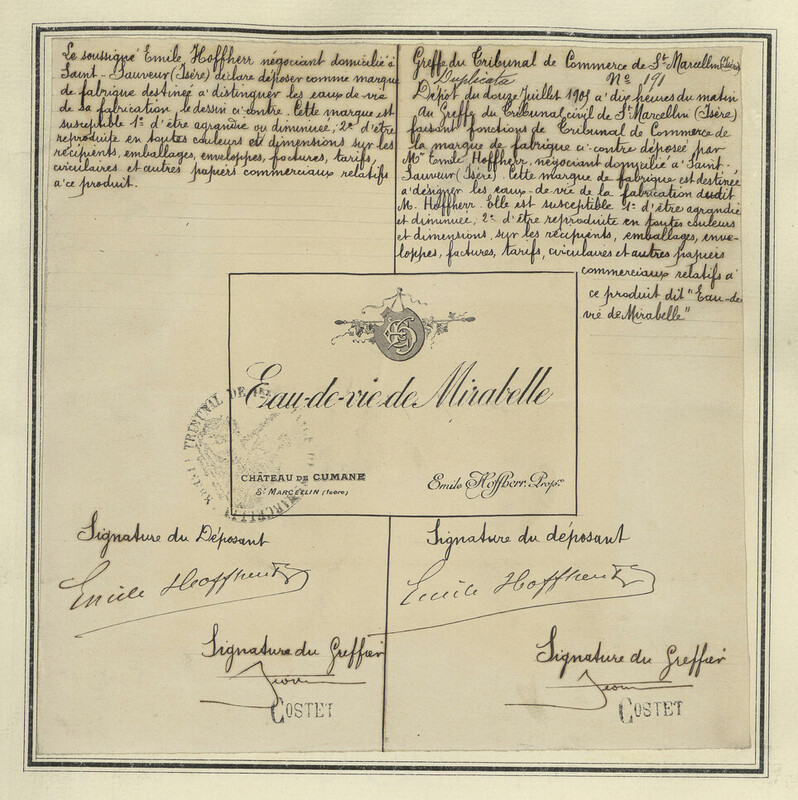 Le soussigné Emile Hoffherr négociant domicilié à
Saint-Sauveur (Isère) déclare déposer comme marque
de fabrique destinée à distinguer les eaux-de-vie
de sa fabrication, le dessin ci-contre. Cette marque est
susceptible 1º d'être agrandie ou diminuée, 2º d'être
reproduite en toutes couleurs et dimensions sur les
récipients, emballages, enveloppes, factures, tarifs,
circulaires et autres papiers commerciaux relatifs
à ce produit.
Greffe du Tribunal de Commerce de St Marcellin (Isère)
Duplicata Nº 191
Dépôt du douze Juillet 1901 à dix heures du matin
Au Greffe du Tribunal civil de St Marcellin (Isère)
faisant fonctions de Tribunal de Commerce de
la marque de fabrique ci-contre déposée par
Mr Emile Hoffherr, négociant domicilié à Saint-
Sauveur (Isère). Cette marque de fabrique est destinée
à désigner les eaux-de-vie de la fabrication dudit
M. Hoffherr. Elle est susceptible 1º d'être agrandie
et diminuée, 2º d'être reproduite en toutes couleurs
et dimensions, sur les récipients, emballages, enve-
loppes, factures, tarifs, circulaires et autres papiers
commerciaux relatifs à
ce produit dit "Eau-de-
vie de Mirabelle"
Eau-de-vie de Mirabelle
TRIBUNAL DE
MARCELLIN
CHÂTEAU DE CUMANE
St MARCELLIN (Isère)
Emile Hoffherr. Propre
Signature du Déposant
Emile Hoffherr
Signature du Greffier
COSTET
Signature du déposant
Emile Hoffherr
Signature du Greffier
COSTET